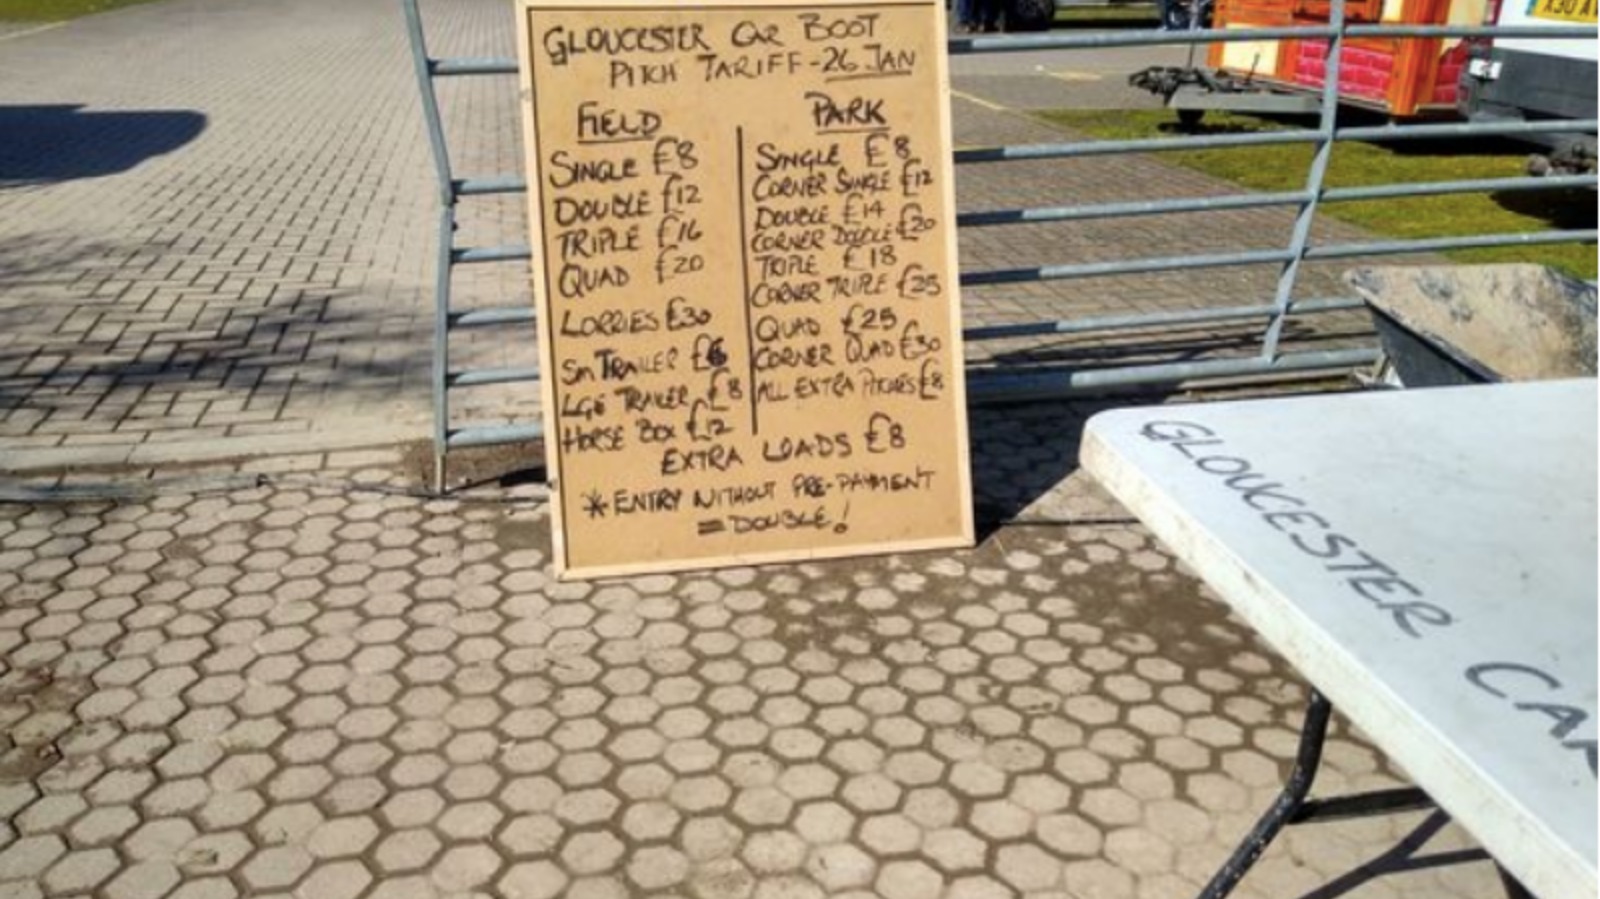 GLOUCESTER CAR BOOT
PITCH TARIFF - 26 JAN
FIELD
SINGLE £8
DOUBLE £12
TRIPLE £16
QUAD £20
LORRIES £30
Sm TRAILER £6
LGE TRAILER £8
HORSE BOX £12
PARK
SINGLE £8
CORNER SINGLE £12
DOUBLE £14
CORNER DOUBLE £20
TRIPLE £18
CORNER TRIPLE £25
QUAD £25
CORNER QUAD £30
ALL EXTRA PITCHES £8
EXTRA LOADS £8
* ENTRY WITHOUT PRE-PAYMENT
= DOUBLE!
GLOUCESTER CAR